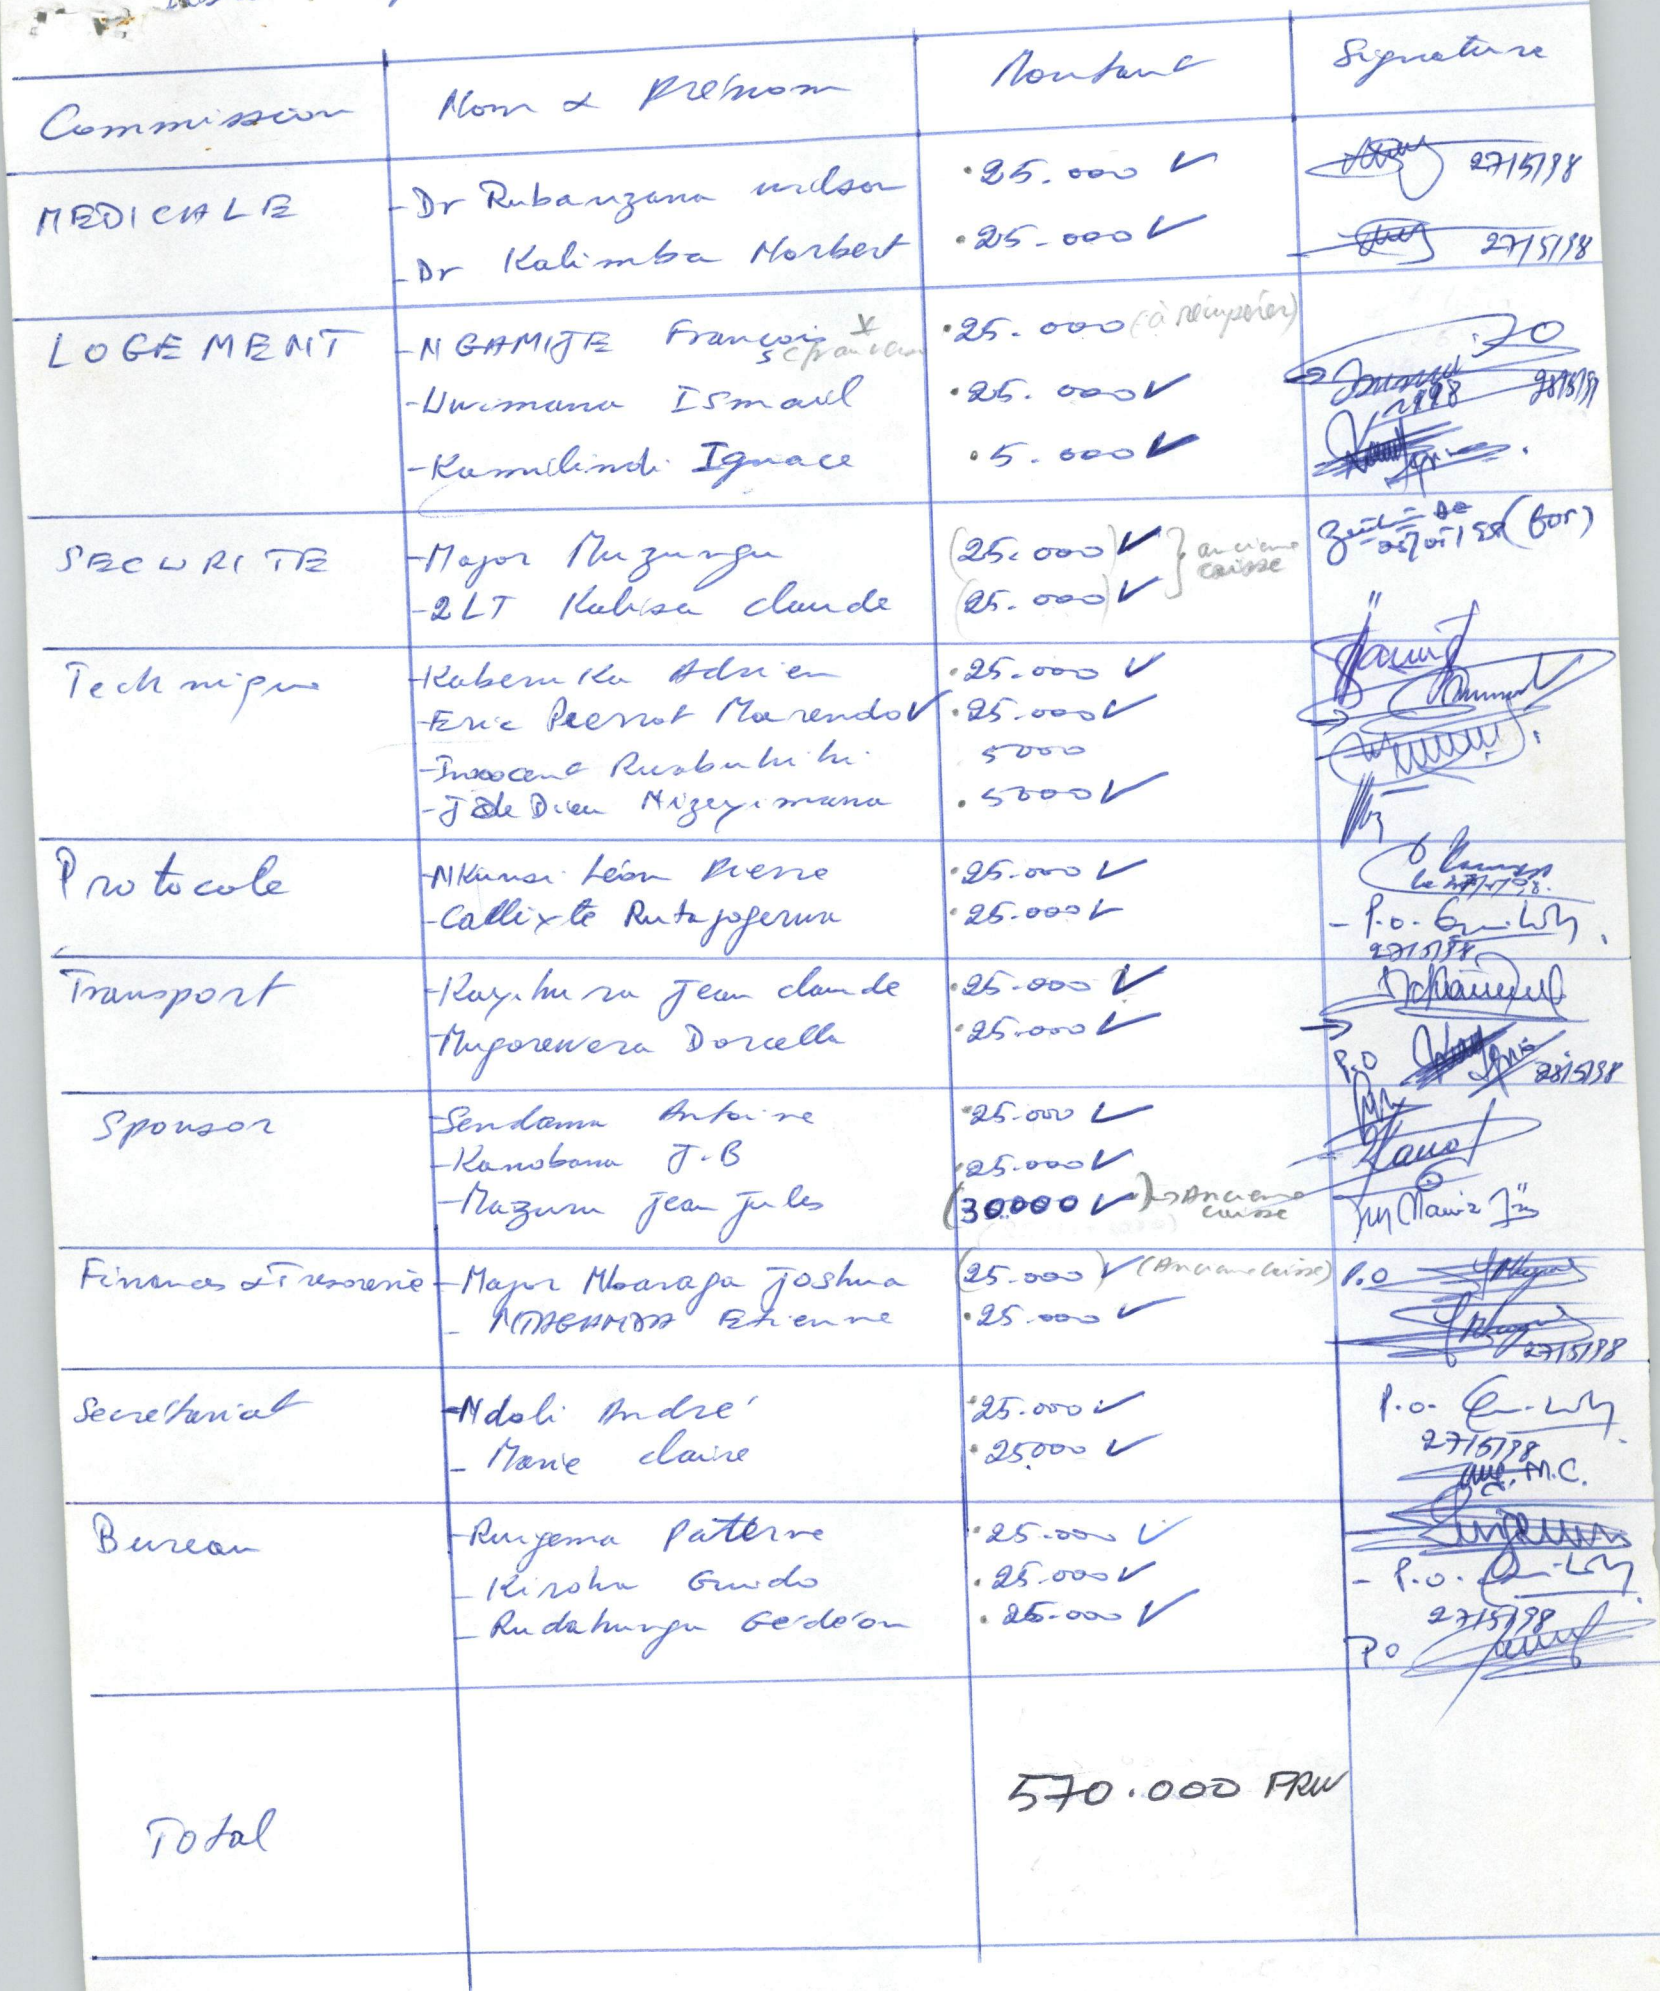 Commission Nom & Prénom Montant Signature
MEDICALE - Dr Rubanzana Wilson .25.000 ✓ 27/5/98
- Dr Kalimba Norbert .25.000 ✓ 27/5/98
LOGEMENT - NGAMIJE François .25.000 (à récupérer)
- Uwimana Ismaïl .25.000 ✓ 28/5/98
- Kamilindi Ignace .5.000 ✓
SECURITE - Major Muzungu (25.000) ✓ ancienne caisse
- 2LT Kabisa claude (25.000) ✓ "
Technique - Kaberuka Adrien .25.000 ✓
- Eric Pierrot Marendo ✓ .25.000 ✓
- Innocent Rusabuhihi 5000
- J de Dieu Nizeyimana .5000 ✓
Protocole - NKunsi Léon Pierre .25.000 ✓
- Callixte Rutajogerwa .25.000 ✓ - P.o.
27/5/98
Transport - Kayihura Jean claude .25.000 ✓
- Mugorewera Dorcella .25.000 ✓ → P.O 28/5/98
Sponsor - Sendama Antoine .25.000 ✓
- Kanobana J.B .25.000 ✓
- Mazuru Jean Jules (30000 ✓) → Ancienne caisse
Finances & Tresorerie - Major Mbaraga Joshua (25.000) ✓ (Ancienne caisse) P.O
- Etienne .25.000 ✓ 27/5/98
Secrétariat - Ndoli André .25.000 ✓ P.o.
27/5/98
- Marie claire .25.000 ✓ M.C.
Bureau - Rwigema Paterne .25.000 ✓
- Kiroha Guido .25.000 ✓ - P.o.
27/5/98
- Rudahunga Gédéon .25.000 ✓ PO
Total 570.000 FRW